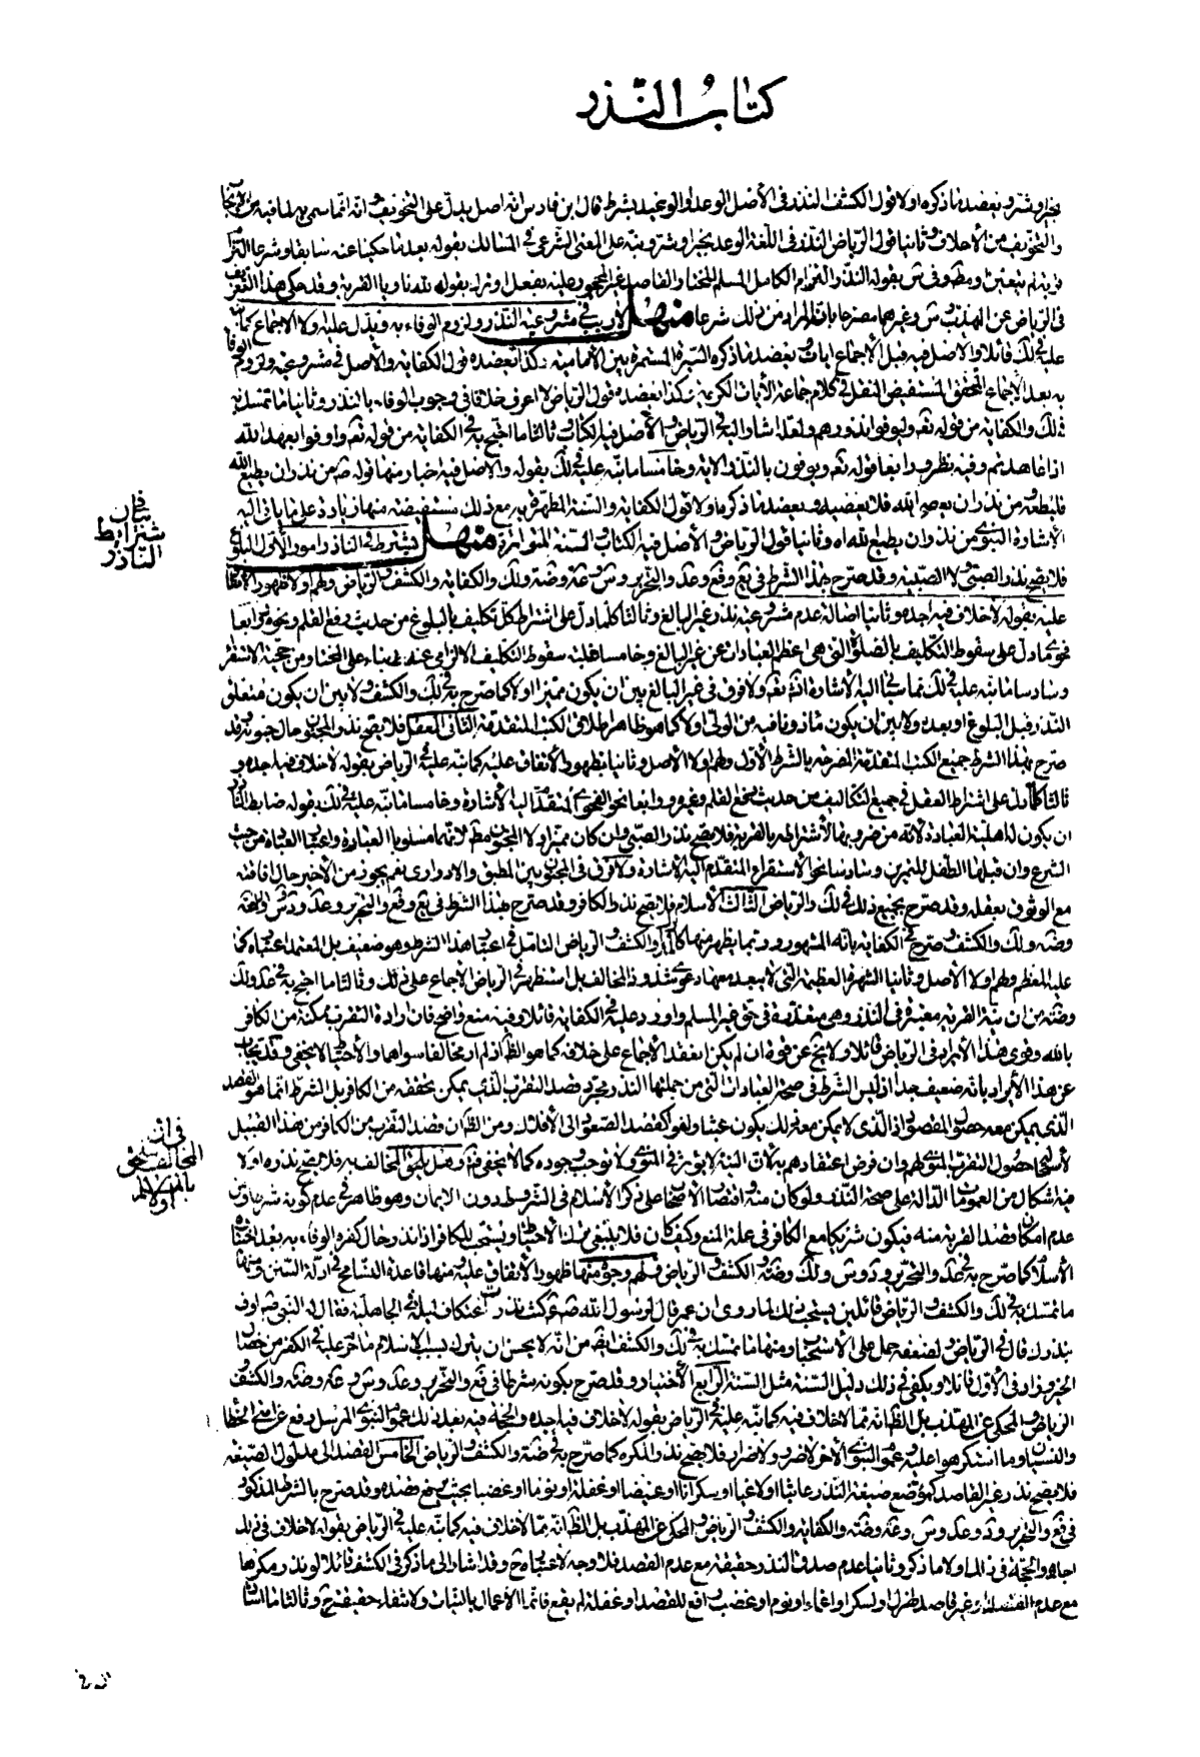 كتاب النذر
بخير او شر و يعضد ما ذكره اولا قول الكشف النذر فى الأصل الوعد او الوعيد بشرط قال ابن فارس انه اصل يدل على التخويف و انه انما سمى به لما فيه من
و التخويف من الأخلاف و ثانيا قول الرياض النذر فى اللغة الوعد بخير او شر و نبه على المعنى الشرعى فى المسالك بقوله بعد ما حكينا عنه سابقا و شرعا
بقوله النذر التزام الكامل المسلم المختار القاصد غير المحجور عليه بفعل او ترك بقوله لله ناويا القربة و قد حكى هذا التعريف
فى الرياض عن المهذب و غيرهما مصرحا بان المراد من ذلك شرعا منهل لا ريب فى مشروعية النذر و لزوم الوفاء به و يدل عليه اولا الاجماع كما
عليه فى لك قائلا و الاصل فيه قبل الأجماع ايات و يعضد ما ذكره السيرة المستمرة بين الأمامية و كذا يعضده قول الكفاية و الأصل فى مشروعيته و لزوم الوفاء
به بعد الاجماع المحقق المستفيض النقل فى كلام جماعة الأيات الكريمة و كذا يعضده قول الرياض لا اعرف خلافا فى وجوب الوفاء بالنذر و ثانيا ما تمسك به
فى لك و الكفاية من قوله تعالى و ليوفوا نذورهم و لقد اشار اليه فى الرياض و الأصل فيه الكتاب و ثالثا ما احتج به فى الكفاية من قوله تعالى و اوفوا بعهد الله
اذا عاهدتم و فيه نظر و رابعا قوله تعالى و يوفون بالنذر الاية و خامسا ما نبه عليه فى لك بقوله و الاصل فيه اخبار منها قوله ص من نذر ان يطيع الله
فليطعه و من نذر ان يعصى الله فلا يعصيه و يعضد ما ذكره اولا قول الكفاية و السنة المطهرة به مع ذلك مستفيضة منها زيادة على ما ياتى اليه
الأشارة النبوى من نذر ان يطيع الله اه و ثانيا قول الرياض و الأصل فيه الكتاب و السنة المتواترة منهل يشترط فى الناذر امور الأول البلوغ
فلا يصح نذر الصبى و لا الصبية و قد صرح بهذا الشرط فى يع و فع و عد و التحرير و س و عة و ضة و لك و الكفاية و الكشف و الرياض و لهم اولا ظهور الاتفاق
عليه بقوله لا خلاف فيه اجده و ثانيا اصالة عدم مشروعية نذر غير البالغ و ثالثا كلما دل على اشتراط كل تكليف بالبلوغ من حديث رفع القلم و نحوه و رابعا
فحوى ما دل على سقوط التكليف بالصلوة التى هى اعظم العبادات عن غير البالغ و خامسا غلبة سقوط التكليف الالزامى عنه بناء على المختار من حجية الاستقراء
و سادسا ما نبه عليه فى لك مما سياتى اليه الأشارة انشاء الله تعالى و لا فرق فى غير البالغ بين ان يكون مميزا او لا كما صرح به فى لك و الكشف و لا بين ان يكون متعلق
النذر قبل البلوغ او بعده و لا بين ان يكون ماذونا فيه من الولى او لا كما هو ظاهر اطلاق الكتب المتقدمة الثانى العقل فلا يصح نذر المجنون حال جنونه و قد
صرح بهذا الشرط جميع الكتب المتقدمة المصرحة بالشرط الأول و لهم اولا الأصل و ثانيا ظهور الأتفاق عليه كما نبه عليه فى الرياض بقوله لا خلاف فيه اجده و
ثالثا كلما دل على اشتراط العقل فى جميع التكاليف من حديث رفع القلم و غيره و رابعا نحو الفحوى المتقدم اليها الأشارة و خامسا ما نبه عليه فى لك بقوله ضابط الناذر
ان يكون له اهلية العبادة لانه من ضروبها لأشتراطه بالقربة فلا يصح نذر الصبى و ان كان مميزا و لا المجنون مطلقا لانهما مسلوبا العبارة و اعتبار العبادة من حيث
الشرع و ان قبلها الطفل للتمرين و سادسا نحو الأستقراء المتقدم اليه الأشارة و لا فرق فى المجنون بين المطبق و الادوارى نعم يجوز من الأخير حال افاقته
مع الوثوق بعقله و قد صرح بجميع ذلك فى لك و الرياض الثالث الأسلام فلا يصح نذر الكافر و قد صرح بهذا الشرط فى يع و فع و التحرير و عد و د و س و اللمعة
و ضة و لك و الكشف و صرح فى الكفاية بانه المشهور و ربما يظهر منها كالكشف و الرياض التامل فى اعتبار هذا الشرط و هو ضعيف بل المعتمد اعتباره كما
عليه المعظم و لهم اولا الأصل و ثانيا الشهرة العظيمة التى لا يبعد معها دعوى شذوذ المخالف بل استظهر فى الرياض الأجماع على ذلك و ثالثا ما احتج به فى عد و لك
و ضة من ان نية القربة معتبرة فى النذر و هى متعذرة فى حق غير المسلم و اورد عليه فى الكفاية قائلا و فيه منع واضح فان ارادة التقرب ممكنة من الكافر
بالله و قوى هذا الأيراد فى الرياض قائلا و لا يخ عن قوة ان لم يكن انعقد الأجماع على خلافه كما هو الظاهر اذ لم ار مخالفا سواهما و الأحتياط لا يخفى و قد يجاب
عن هذا الأيراد بانه ضعيف جدا اذ ليس الشرط فى صحة العبادات التى من جملتها النذر مجرد قصد التقرب الذى يمكن تحققه من الكافر بل الشرط انما هو القصد
الذى يمكن معه حصول المقصود اذ الذى لا يمكن معه ذلك يكون عبثا و لغوا كقصد الصعود الى الأفلاك و من الظاهر ان قصد التقرب من الكافر من هذا القبيل
لأستحالة حصول التقرب المنوى لهم و ان فرض اعتقادهم به لأن النية لا يؤثر فى المنوى لا توجب وجوده كما لا يخفى فتدبر و هل يلحق المخالف به فلا يصح نذره او لا
فيه اشكال من العمومات الدالة على صحة النذر و لو كان منه و اقتصار الأصحاب على ذكر الأسلام فى الشروط دون الايمان و هو ظاهر فى عدم كونه شرطا و من
عدم امكان قصد القربة منه فيكون شريكا مع الكافر فى علة المنع و كيف كان فلا ينبغى ترك الأحتياط و يستحب للكافر اذا نذر حال كفره الوفاء به بعد اختياره
الأسلام كما صرح به فى عد و التحرير و د و س و لك و ضة و الكشف و الرياض و لهم وجوه منها ظهور الأتفاق عليه و منها قاعدة التسامح فى ادلة السنن و منها
ما تمسك به فى لك و الكشف و الرياض قائلين يستحب ذلك لما روى ان عمر قال لرسول الله ص انى كنت نذرت اعتكاف ليلة فى الجاهلية فقال له النبى ص اوف
بنذرك قال فى الرياض و لضعفه حمل على الأستحباب و منها ما تمسك به فى لك و الكشف ايضا من انه لا يحسن ان يترك بسبب الاسلام ما عزم عليه فى الكفر من خصال
الخير و زاد فى الأول قائلا و يكفى فى ذلك دليل السنة مثل السنة الرابع الأختيار و قد صرح بكونه شرطا فى فع و التحرير و عد و س و عة و ضة و الكشف
الرياض و المحكى عن المهذب بل الظاهر انه مما لا خلاف فيه كما نبه عليه فى الرياض بقوله لا خلاف فيه اجده و الحجة فيه بعد ذلك عموم النبوى المرسل رفع عن امتى الخطا
و النسيان و ما استكرهوا عليه و عموم النبوى الأخر لا ضرر و لا ضرار فلا يصح نذر المكره كما صرح به فى ضة و الكشف و الرياض الخامس القصد الى مدلول الصيغة
فلا يصح نذر غير القاصد كمن وقع صيغة النذر عابثا او لاعبا او سكرانا او غفلة او نوما او غضبا بحيث يرفع قصده و قد صرح بالشرط المذكور
فى فع و التحرير و د و عد و س و عة و ضة و الكفاية و الكشف و الرياض و المحكى عن المهذب بل الظاهر انه مما لا خلاف فيه كما نبه عليه فى الرياض بقوله لا خلاف فى ذلك
اجده و الحجة فى ذلك اولا ما ذكر و ثانيا عدم صدق النذر حقيقة مع عدم القصد فلا وجه لأعتباره ح و قد اشار الى ما ذكر فى الكشف قائلا لو نذر مكرها
مع عدم القصد او غير قاصد لهزل او لسكر او اغماء او نوم او غضب رافع للقصد او غفلة لم يقع فانما الأعمال بالنيات و لانتفاء حقيقته ح و ثالثا ما اشار
فى بيان
شرايط
الناذر
فى ان
المخالف يلحق
بالكافر
او لا